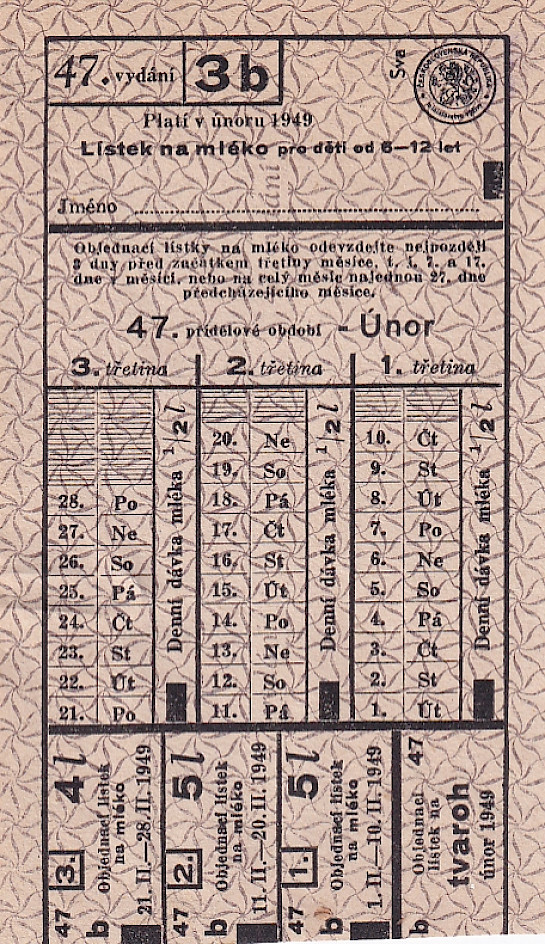 47. vydání 3b
Sva
Platí v únoru 1949
Lístek na mléko pro děti od 6—12 let
Jméno
Objednací lístky na mléko odevzdejte nejpozději
3 dny před začátkem třetiny měsíce, t. j. 7. a 17.
dne v měsíci, nebo na celý měsíc najednou 27. dne
předcházejícího měsíce.
47. přídělové období - Únor
3. třetina 2. třetina 1. třetina
20. Ne 10. Čt
19. So 9. St
28. Po 18. Pá 8. Út
27. Ne 17. Čt 7. Po
26. So 16. St 6. Ne
25. Pá 15. Út 5. So
24. Čt 14. Po 4. Pá
23. St 13. Ne 3. Čt
22. Út 12. So 2. St
21. Po 11. Pá 1. Út
Denní dávka mléka 1/2 l
Denní dávka mléka 1/2 l
Denní dávka mléka 1/2 l
47 3. 4 l
b Objednací lístek
na mléko
21. II.—28. II. 1949
47 2. 5 l
b Objednací lístek
na mléko
11. II.—20. II. 1949
47 1. 5 l
b Objednací lístek
na mléko
1. II.—10. II. 1949
47
b Objednací
lístek na
tvaroh
únor 1949